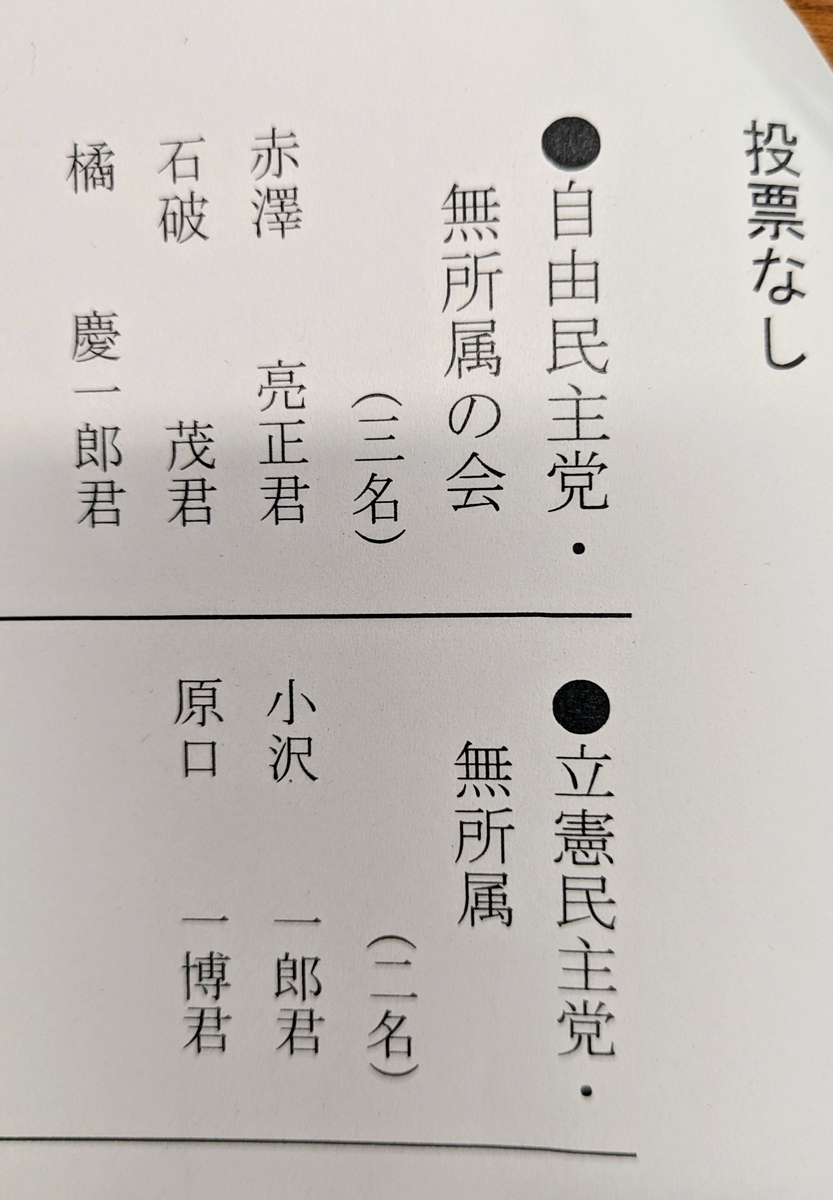 投票なし
●自由民主党・
無所属の会
(三名)
赤澤 亮正君
石破 茂君
橘 慶一郎君
●立憲民主党・
無所属
(二名)
小沢 一郎君
原口 一博君